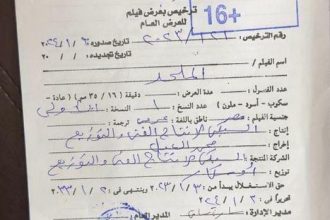 ترخيص بعرض فيلم
للعرض العام
+16
رقم الترخيص: ١٢١ / ٢٠٢٣ تاريخ صدوره: ٦ / ١ / ٢٠٢٤
تاريخ تجديده: / / ٢٠
اسم الفيلم / الملحد
عدد الفصول: مدة العرض: (١٦ / ٣٥ مم) (عادة -
سكوب - أسود - ملون) عدد النسخ: ١ النسخة:
جنسية الفيلم: مصر ناطق باللغة: عربى ترجمة:
إنتاج: السبكى للإنتاج الفنى والتوزيع
إخراج: محمد العدل
الشركة المنتجة: السبكى للإنتاج الفنى والتوزيع
حق الاستغلال يبدأ من: ٣ / ١ / ٢٠٢٣ وينتهى فى: ٢ / ١ / ٢٠٣٣
تحريراً فى: ٢ / ١ / ٢٠٢٤
مدير الإدارة: المدير العام